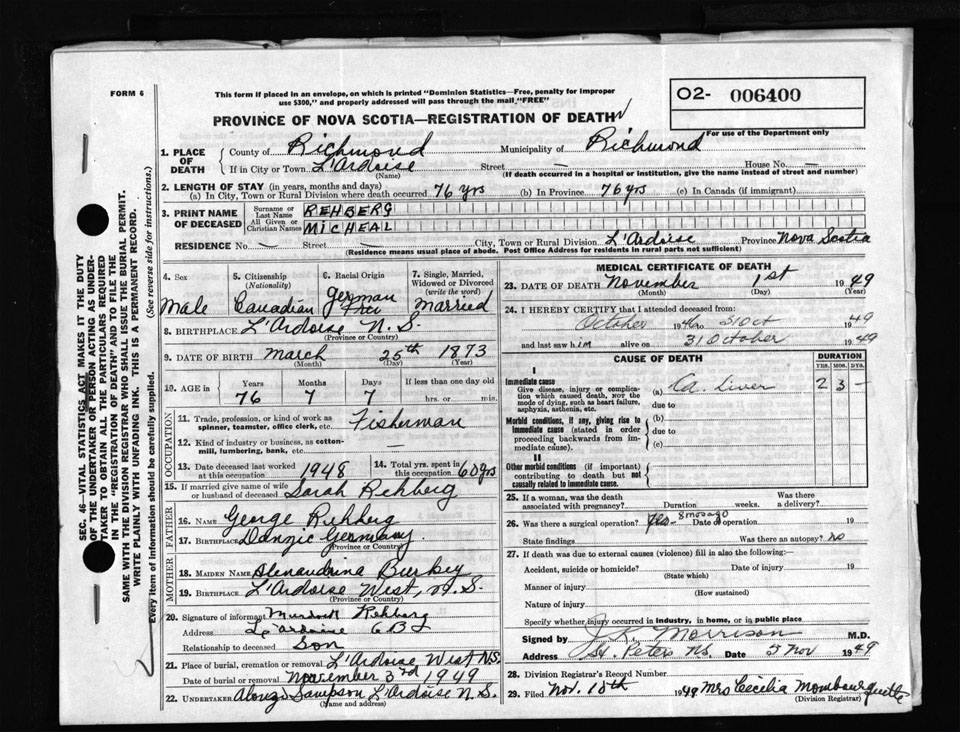 FORM 6
This form if placed in an envelope, on which is printed "Dominion Statistics—Free, penalty for improper
use $300," and properly addressed will pass through the mail "FREE"
PROVINCE OF NOVA SCOTIA—REGISTRATION OF DEATH
O2- 006400
For use of the Department only
1. PLACE OF DEATH
County of Richmond Municipality of Richmond
If in City or Town L'Ardoise Street — House No. —
(Name) (If death occurred in a hospital or institution, give the name instead of street and number)
2. LENGTH OF STAY (in years, months and days)
(a) In City, Town or Rural Division where death occurred 76 yrs (b) In Province 76 yrs (c) In Canada (if immigrant)
3. PRINT NAME OF DECEASED
Surname or Last Name REHBERG
All Given or Christian Names MICHEAL
RESIDENCE No. — Street — City, Town or Rural Division L'Ardoise Province Nova Scotia
(Residence means usual place of abode. Post Office Address for residents in rural parts not sufficient)
4. Sex
Male
5. Citizenship
(Nationality)
Canadian
6. Racial Origin
German
7. Single, Married, Widowed or Divorced
(write the word)
Married
8. BIRTHPLACE L'Ardoise N.S.
(Province or Country)
9. DATE OF BIRTH March 25th 1873
(Month) (Day) (Year)
10. AGE in
Years Months Days If less than one day old
76 7 7 hrs. or min.
OCCUPATION
11. Trade, profession, or kind of work as
spinner, teamster, office clerk, etc. Fisherman
12. Kind of industry or business, as cotton-
mill, lumbering, bank, etc. —
13. Date deceased last worked
at this occupation 1948
14. Total yrs. spent in
this occupation 60 yrs
15. If married give name of wife
or husband of deceased Sarah Rehberg
FATHER
16. NAME George Rehberg
17. BIRTHPLACE Danzic Germany
(Province or Country)
MOTHER
18. MAIDEN NAME Alenandrina Burkey
19. BIRTHPLACE L'Ardoise West, N.S.
(Province or Country)
20. Signature of informant Murdock Rehberg
Address L'ardoise C B
Relationship to deceased Son
21. Place of burial, cremation or removal L'Ardoise West N.S.
Date of burial or removal November 3rd 1949
22. UNDERTAKER Alonzo Sampson L'Ardoise N.S.
(Name and address)
MEDICAL CERTIFICATE OF DEATH
23. DATE OF DEATH November 1st 1949
(Month) (Day) (Year)
24. I HEREBY CERTIFY that I attended deceased from:
October 1946 to 31 Oct 1949
and last saw him alive on 31 October 1949
CAUSE OF DEATH
DURATION
YRS. MOS. DYS.
I
Immediate cause
Give disease, injury or complica-
tion which caused death, NOT the
mode of dying, such as heart failure,
asphyxia, asthenia, etc.
(a) Ca. Liver 2 3 —
due to
Morbid conditions, if any, giving rise to
immediate cause (stated in order
proceeding backwards from im-
mediate cause).
(b)
due to
(c)
II
Other morbid conditions (if important)
contributing to death but not
causally related to immediate cause.
25. If a woman, was the death
associated with pregnancy? Duration weeks. Was there a delivery?
26. Was there a surgical operation? Yes 8 mos ago Date of operation 19
State findings Was there an autopsy? No
27. If death was due to external causes (violence) fill in also the following:—
Accident, suicide or homicide? Date of injury 19
(State which)
Manner of injury
(How sustained)
Nature of injury
Specify whether injury occurred in industry, in home, or in public place
Signed by J. K. Morrison M.D.
Address St. Peters NS. Date 5 Nov 1949
28. Division Registrar's Record Number
29. Filed Nov. 15th 1949 Mrs Cecilia Mombourquette
(Division Registrar)
SEC. 46—VITAL STATISTICS ACT MAKES IT THE DUTY
OF THE UNDERTAKER OR PERSON ACTING AS UNDER-
TAKER TO OBTAIN ALL THE PARTICULARS REQUIRED
IN THE "REGISTRATION OF DEATH" AND TO FILE THE
SAME WITH THE DIVISION REGISTRAR WHO SHALL ISSUE THE BURIAL PERMIT.
WRITE PLAINLY WITH UNFADING INK. THIS IS A PERMANENT RECORD.
Every item of information should be carefully supplied. (See reverse side for instructions.)